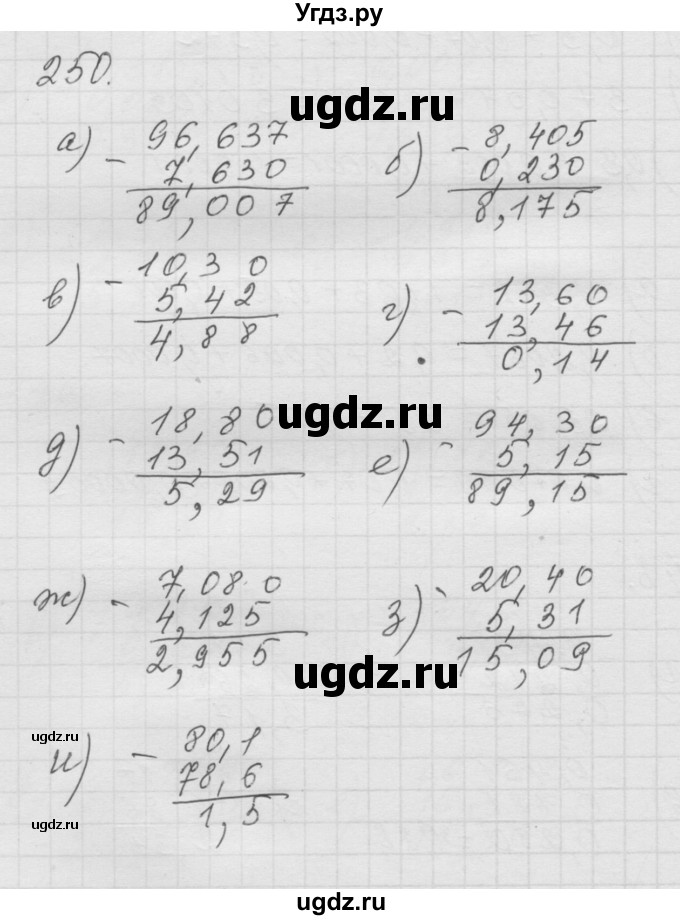 Угдз.ру
250.
ugdz.ru
а) - 96,637 б) - 8,405
7,630 0,230
89,007 8,175
в) - 10,30 г) - 13,60
5,42 13,46
4,88 0,14
ugdz.ru
д) - 18,80 е) - 94,30
13,51 5,15
5,29 89,15
ж) - 7,080 з) - 20,40
4,125 5,31
2,955 15,09
ugdz.ru
ugdz.ru
и) - 80,1
78,6
1,5
ugdz.ru
ugdz.ru
Угдз.ру